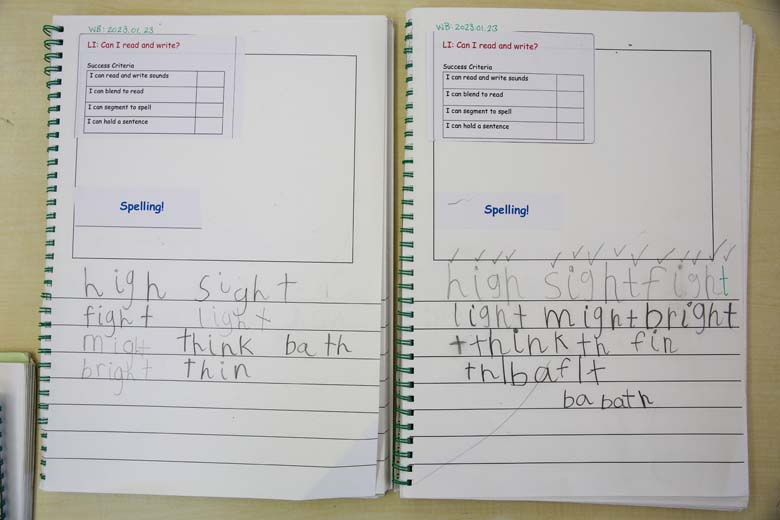 WB: 2023.01.23
LI: Can I read and write?
Success Criteria
I can read and write sounds
I can blend to read
I can segment to spell
I can hold a sentence
Spelling!
high sight
fight light
might think bath
bright thin
WB: 2023.01.23
LI: Can I read and write?
Success Criteria
I can read and write sounds
I can blend to read
I can segment to spell
I can hold a sentence
Spelling!
high sight fight
light might bright
think th fin
ba bath